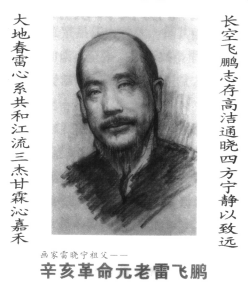 长空飞鹏志存高洁通晓四方宁静以致远
大地春雷心系共和江流三杰甘霖沁嘉禾
画家雷晓宁祖父——
辛亥革命元老雷飞鹏